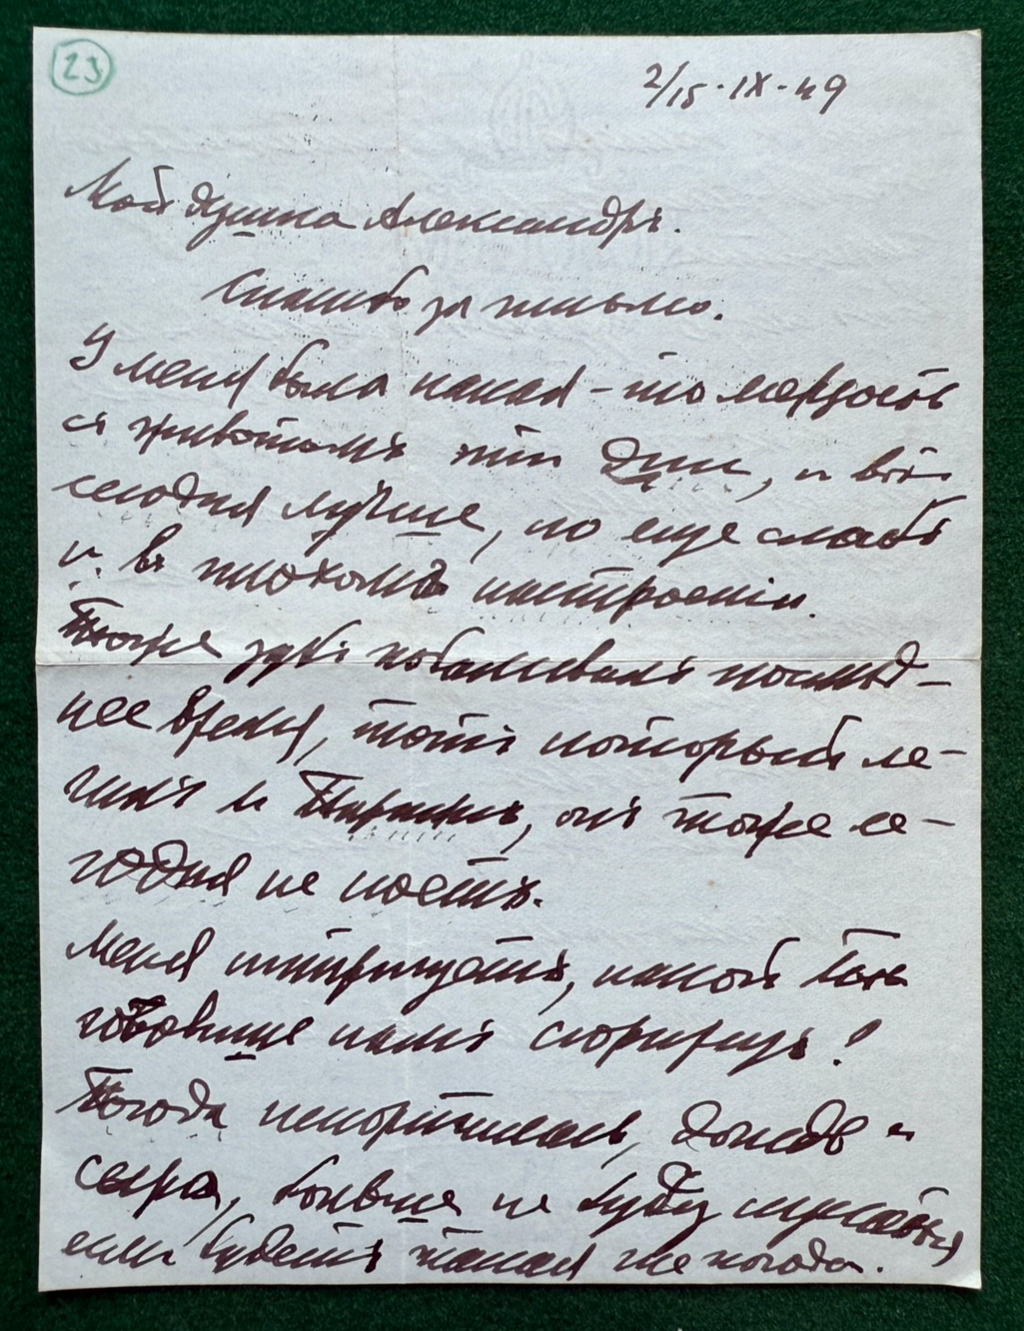 23
2/15·IX·49
Мой душка Александръ.
Спасибо за письмо.
У меня была какая-то мерзость
съ животомъ три дни, и вотъ
сегодня лучше, но еще слабъ
и въ плохомъ настроеніи.
Тоже зубъ побаливалъ послѣд-
нее время, тотъ который ле-
чилъ въ Парижѣ, онъ тоже се-
годня не ноетъ.
Меня интригуетъ, какой ты
готовишь намъ сюрпризъ!
Погода испортилась, дождь и
сыро, больше не буду купаться
если будетъ такая же погода.